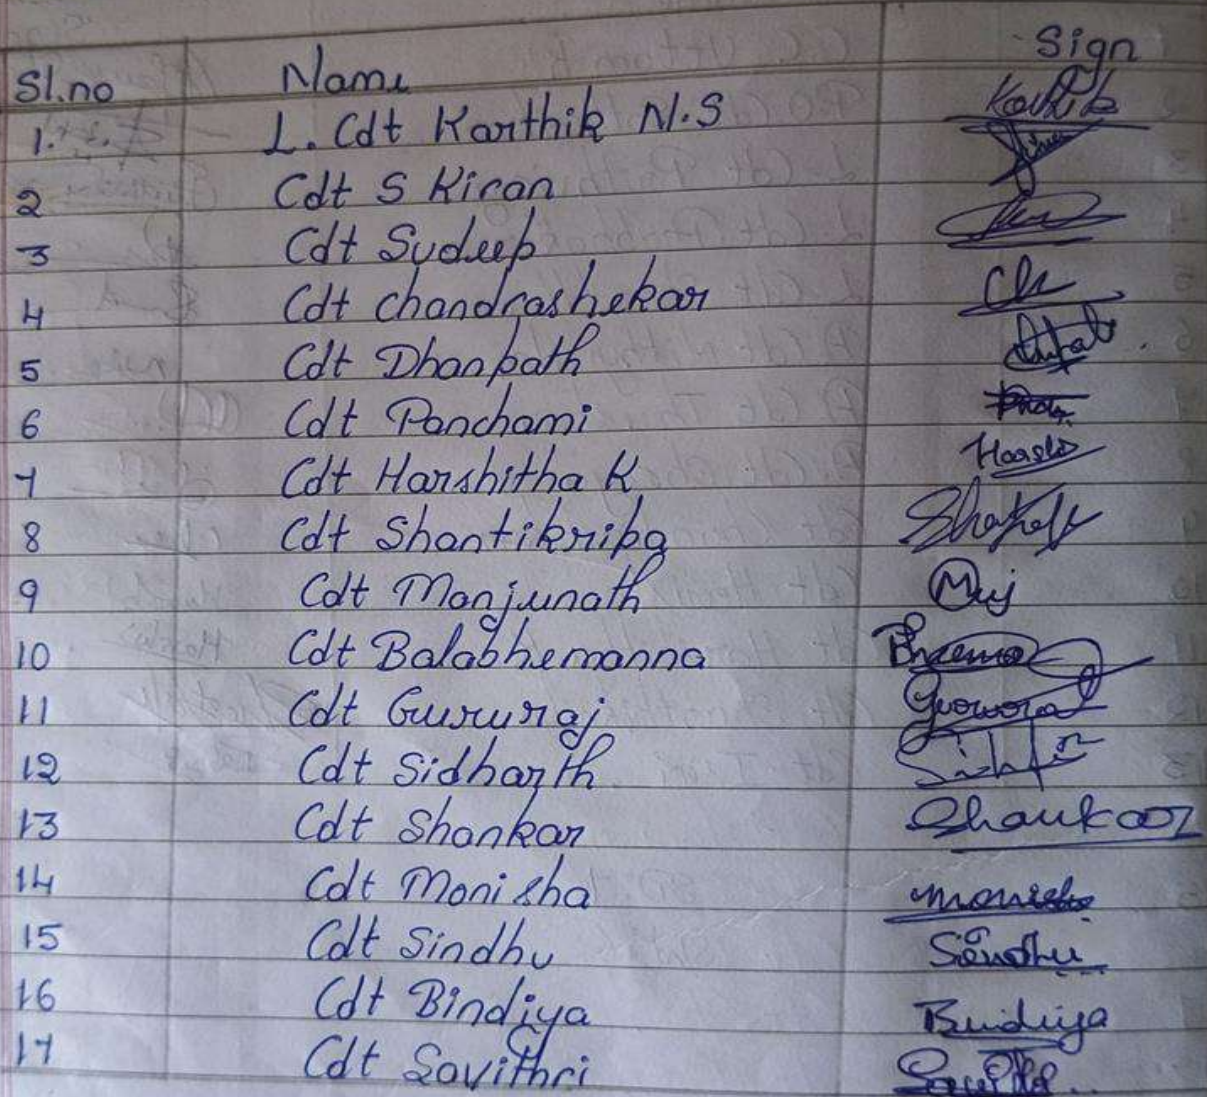 Sl.no Name Sign
1. L. Cdt Karthik N.S Karthik
2 Cdt S Kiran
3 Cdt Sudeep
4 Cdt Chandrashekar
5 Cdt Dhanpath
6 Cdt Panchami
7 Cdt Harshitha K
8 Cdt Shantikripa
9 Cdt Manjunath
10 Cdt Balabhemanna
11 Cdt Gururaj
12 Cdt Sidharth
13 Cdt Shankar Shankar
14 Cdt Monisha Monisha
15 Cdt Sindhu Sindhu
16 Cdt Bindiya Bindiya
17 Cdt Savithri